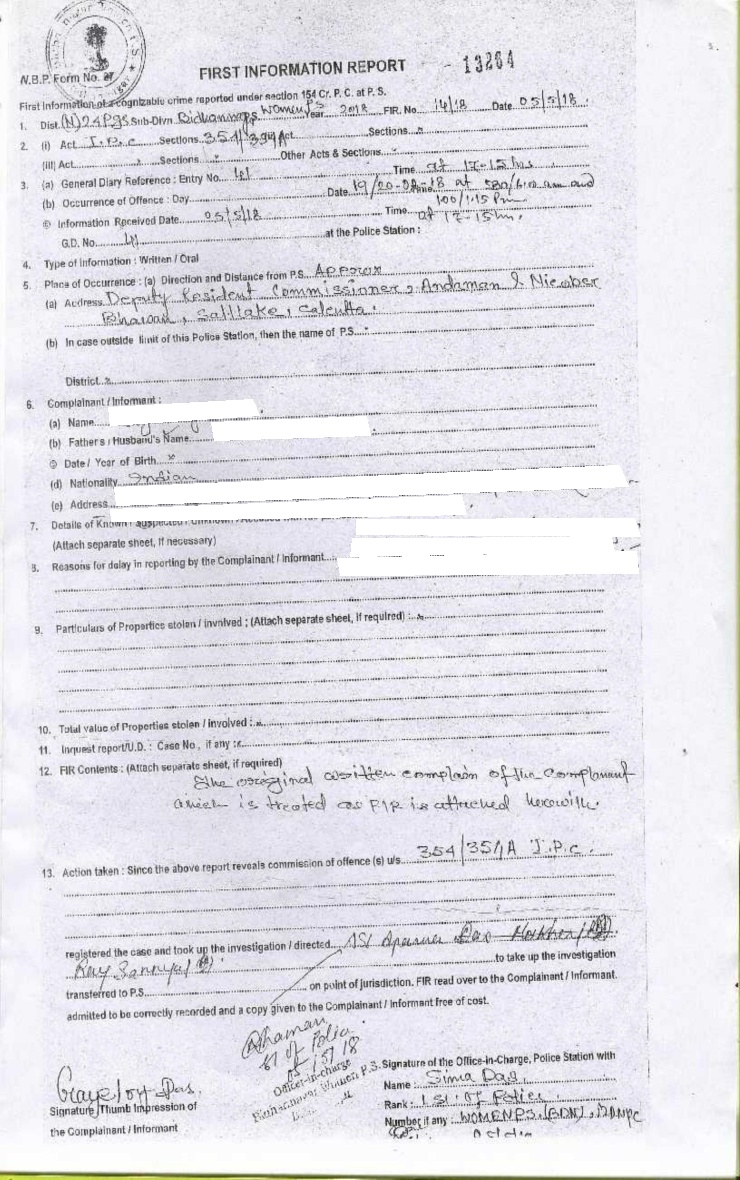 FIRST INFORMATION REPORT - 13264
N.B.P. Form No. 27
First Information of a cognizable crime reported under section 154 Cr. P. C. at P. S.
1. Dist. (N) 24 Pgs Sub-Divn. Bidhannagar P.S. Women PS Year 2018 FIR. No. 14/18 Date 05/5/18
2. (i) Act I.P.C Sections 354/354A Act Sections x
(iii) Act x Sections x Other Acts & Sections x
3. (a) General Diary Reference : Entry No. 41 Time at 17-15 hrs
(b) Occurrence of Offence : Day Date 19/20-02-18 at am and
1.15 Pm
© Information Received Date 05/5/18 Time at 17-15 hrs.
G.D. No. 41 at the Police Station :
4. Type of Information : Written / Oral
5. Place of Occurrence : (a) Direction and Distance from P.S. Approx
(a) Address Deputy Resident Commissioner, Andaman & Nicober
Bhawan, Saltlake, Calcutta.
(b) In case outside limit of this Police Station, then the name of P.S. x
District x
6. Complainant / Informant :
(a) Name
(b) Father's / Husband's Name
© Date / Year of Birth x
(d) Nationality Indian
(e) Address
7. Details of Known / Suspected / Unknown / Accused
(Attach separate sheet, if necessary)
8. Reasons for delay in reporting by the Complainant / Informant
9. Particulars of Properties stolen / involved : (Attach separate sheet, if required) : x
10. Total value of Properties stolen / involved : x
11. Inquest report/U.D. : Case No, if any : x
12. FIR Contents : (Attach separate sheet, if required)
The original written complain of the Complainant
which is treated as FIR is attached herewith.
13. Action taken : Since the above report reveals commission of offence (s) u/s 354/354A I.P.C.
registered the case and took up the investigation / directed
to take up the investigation
transferred to P.S. on point of jurisdiction. FIR read over to the Complainant / Informant.
admitted to be correctly recorded and a copy given to the Complainant / Informant free of cost.
SI of Police
05/5/18
Officer-in-charge
Bidhannagar Women P.S.
Signature of the Office-in-Charge, Police Station with
Name : Sima Das
Signature / Thumb Impression of
Rank : I.SI. of Police
the Complainant / Informant
Number if any : WOMEN PS. (BDN),